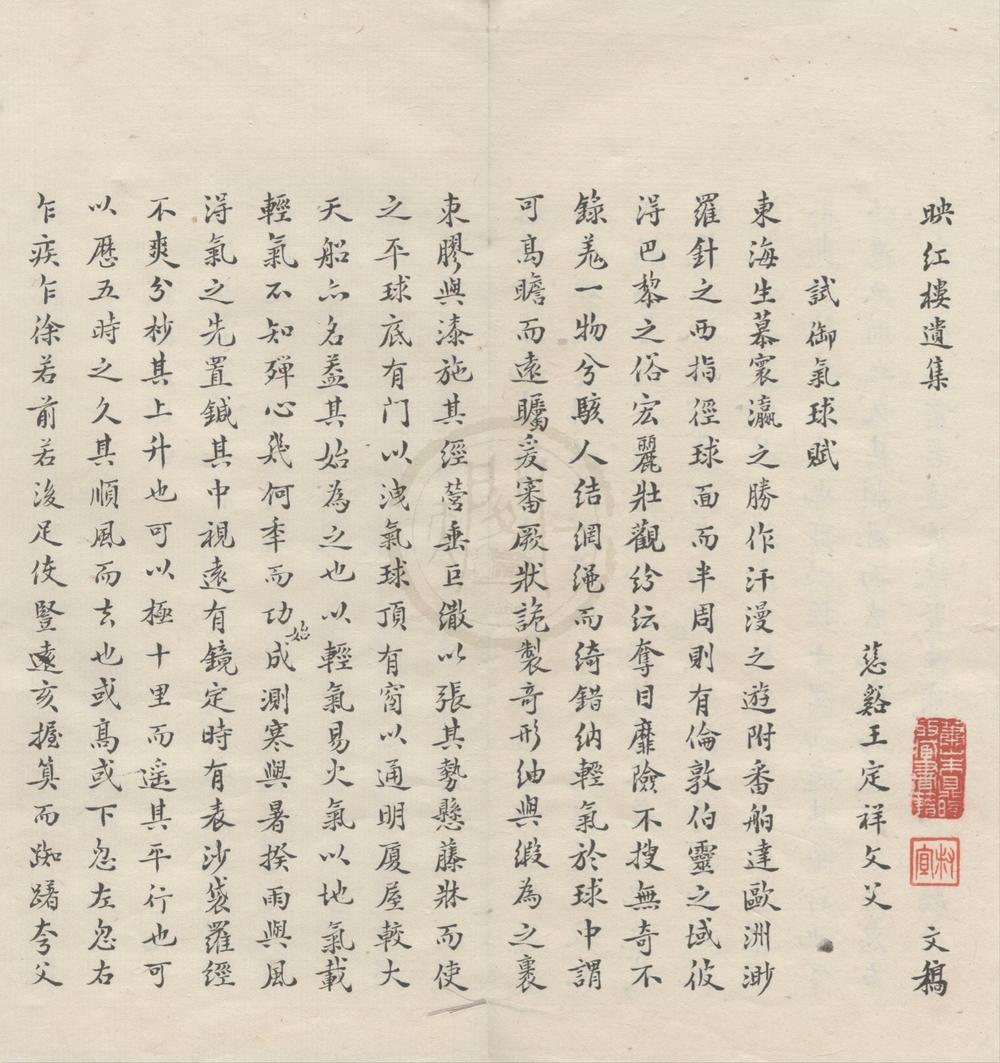 映紅樓遺集 文稿
慈谿王定祥文父
試御氣球賦
東海生慕寰瀛之勝作汗漫之遊附番舶達歐洲渺
羅針之西指徑球面而半周則有倫敦伯靈之域彼
得巴黎之俗宏麗壯觀紛紜奪目靡險不搜無奇不
錄羌一物兮駭人結網繩而綺錯納輕氣於球中謂
可高瞻而遠矚爰審厥狀詭製奇形紬與緞為之裹
朿膠與漆施其經營垂巨緻以張其勢懸藤牀而使
之平球底有門以洩氣球頂有窗以通明廈屋較大
天船亦名蓋其始為之也以輕氣易火氣以地氣載
輕氣不知殫心幾何年而功始成測寒與暑揆雨與風
得氣之先置鍼其中視遠有鏡定時有表沙袋羅經
不爽分杪其上升也可以極十里而遥其平行也可
以歷五時之久其順風而去也或高或下忽左忽右
乍疾乍徐若前若後足使豎遠亥握算而踟躇夸父